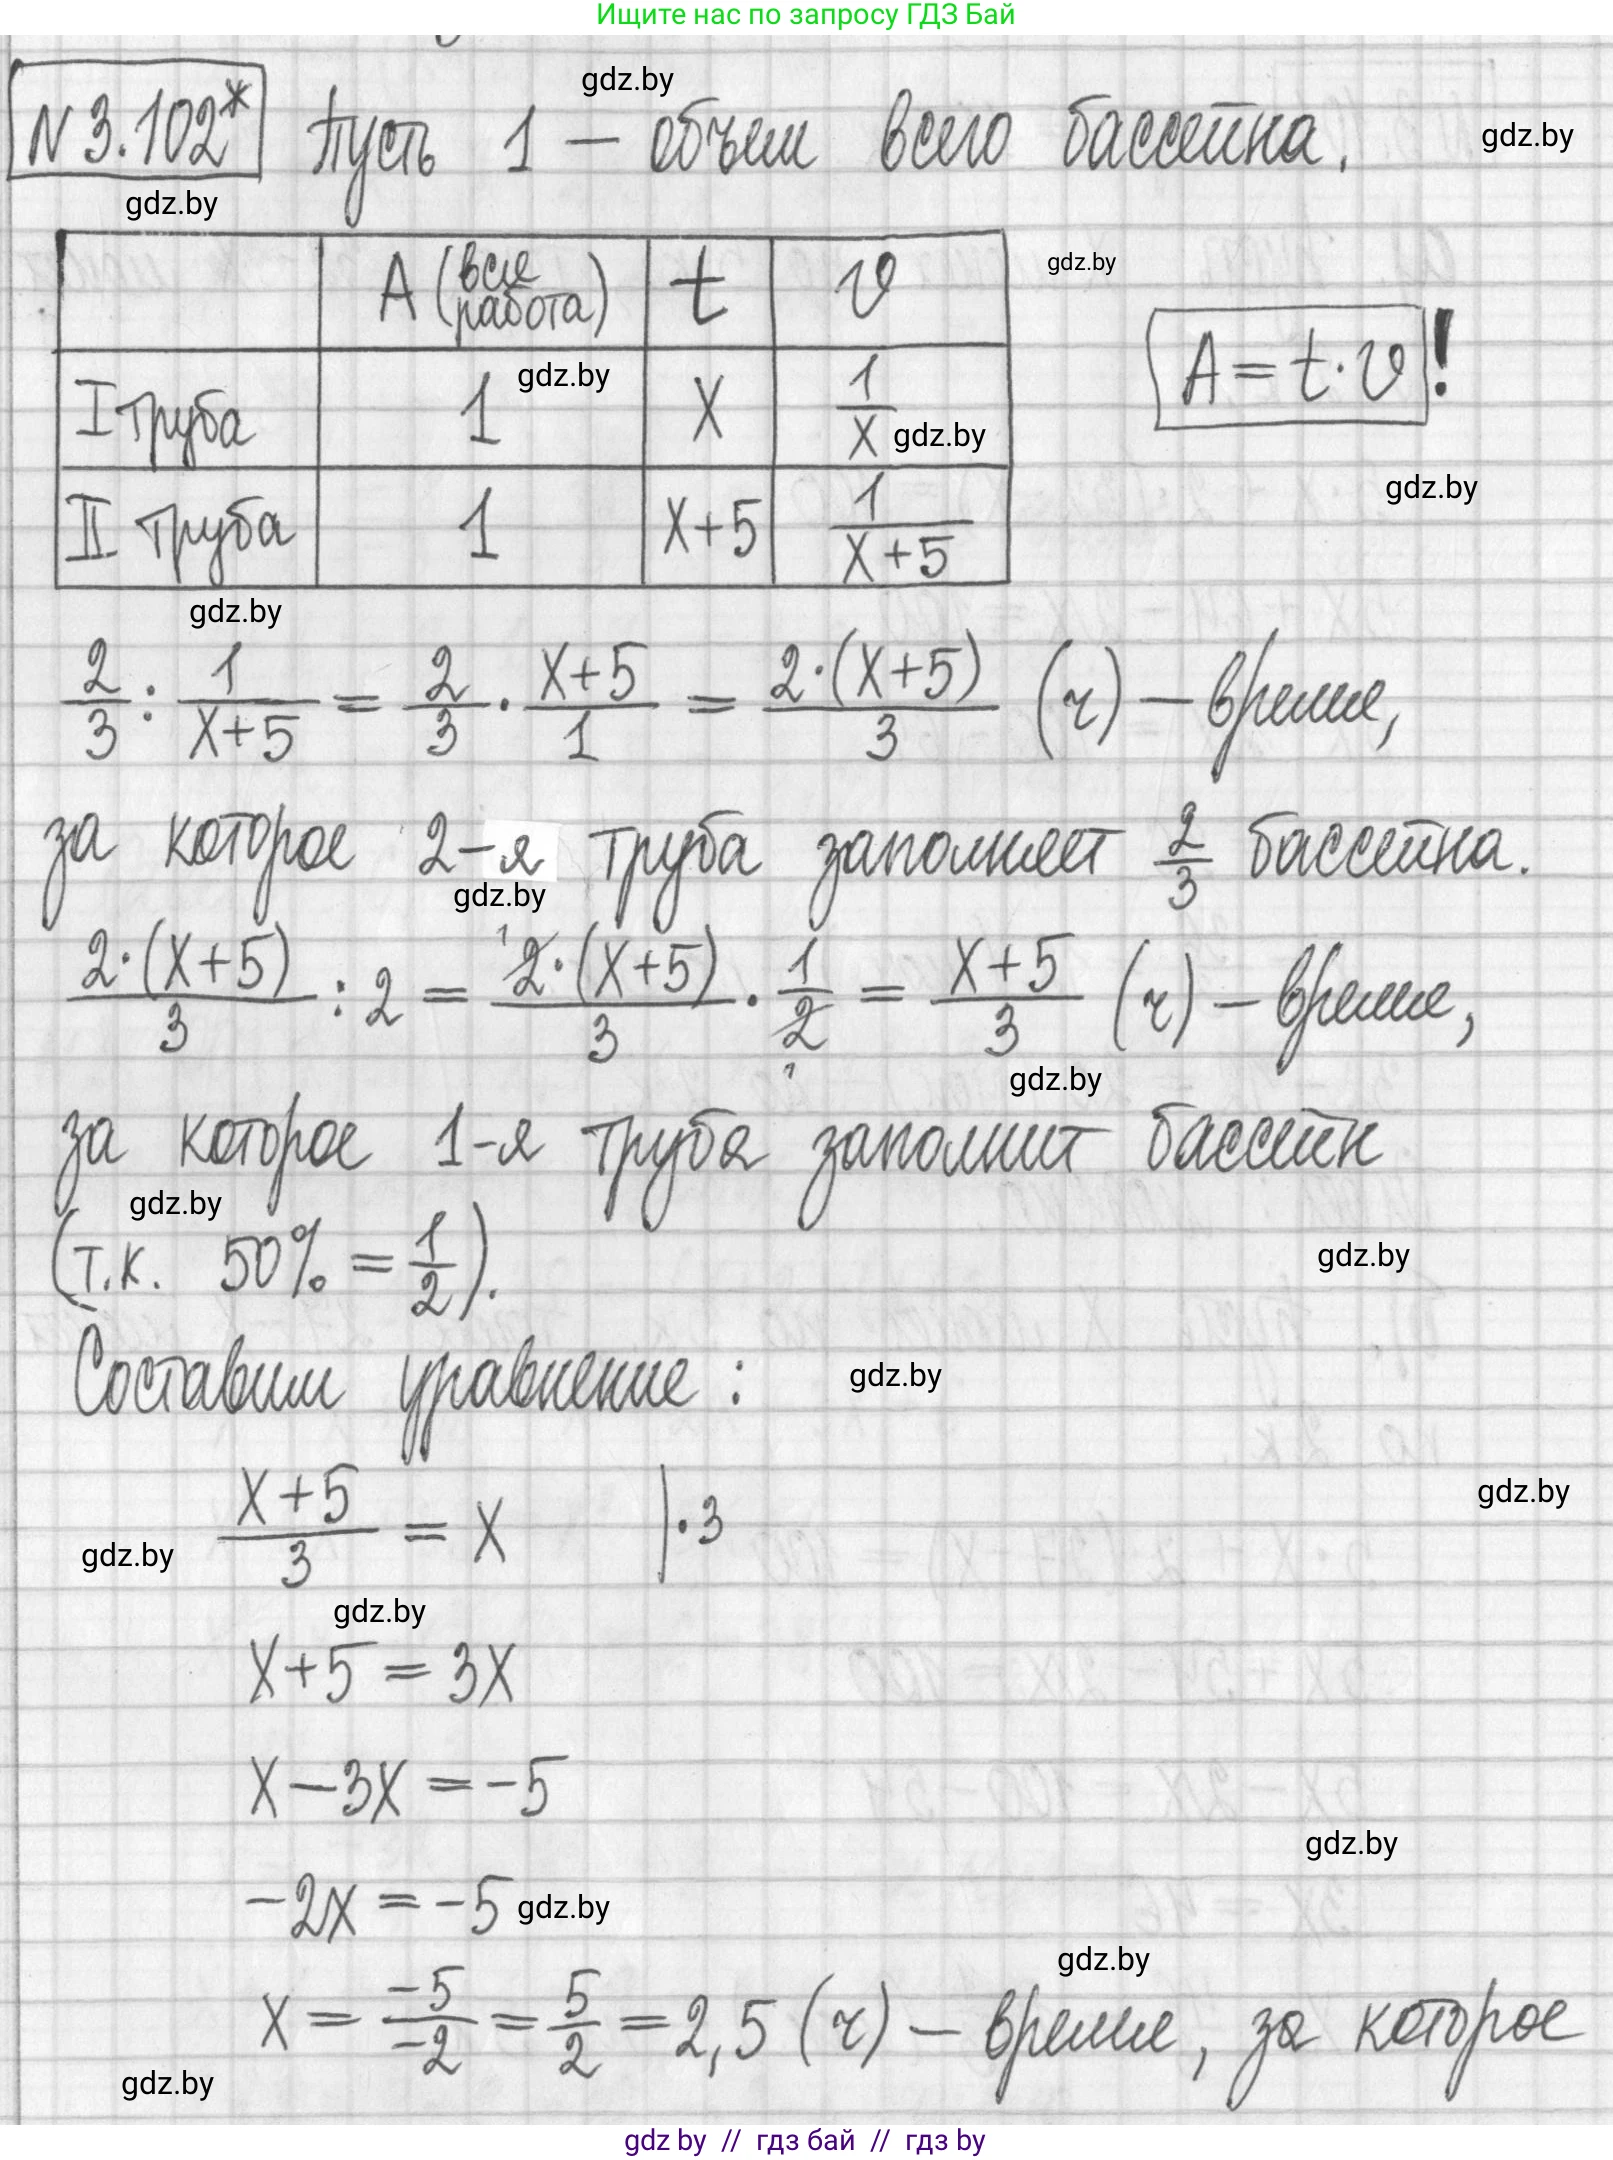 Ищите нас по запросу ГДЗ Бай
gdz.by
N 3.102* Пусть 1 – объем всего бассейна.
gdz.by
gdz.by
A (вся работа) t v
gdz.by
A = t · v !
gdz.by
I труба 1 x 1/x
gdz.by
gdz.by
II труба 1 x+5 1/(x+5)
gdz.by
2/3 : 1/(x+5) = 2/3 · (x+5)/1 = 2·(x+5)/3 (ч) – время,
за которое 2-я труба заполняет 2/3 бассейна.
gdz.by
2·(x+5)/3 : 2 = 2·(x+5)/3 · 1/2 = (x+5)/3 (ч) – время,
gdz.by
за которое 1-я труба заполнит бассейн
gdz.by
(т.к. 50% = 1/2).
gdz.by
Составим уравнение:
gdz.by
(x+5)/3 = x | ·3
gdz.by
gdz.by
gdz.by
x+5 = 3x
x – 3x = -5
gdz.by
-2x = -5
gdz.by
gdz.by
x = -5/-2 = 5/2 = 2,5 (ч) – время, за которое
gdz.by
gdz by // гдз бай // гдз by